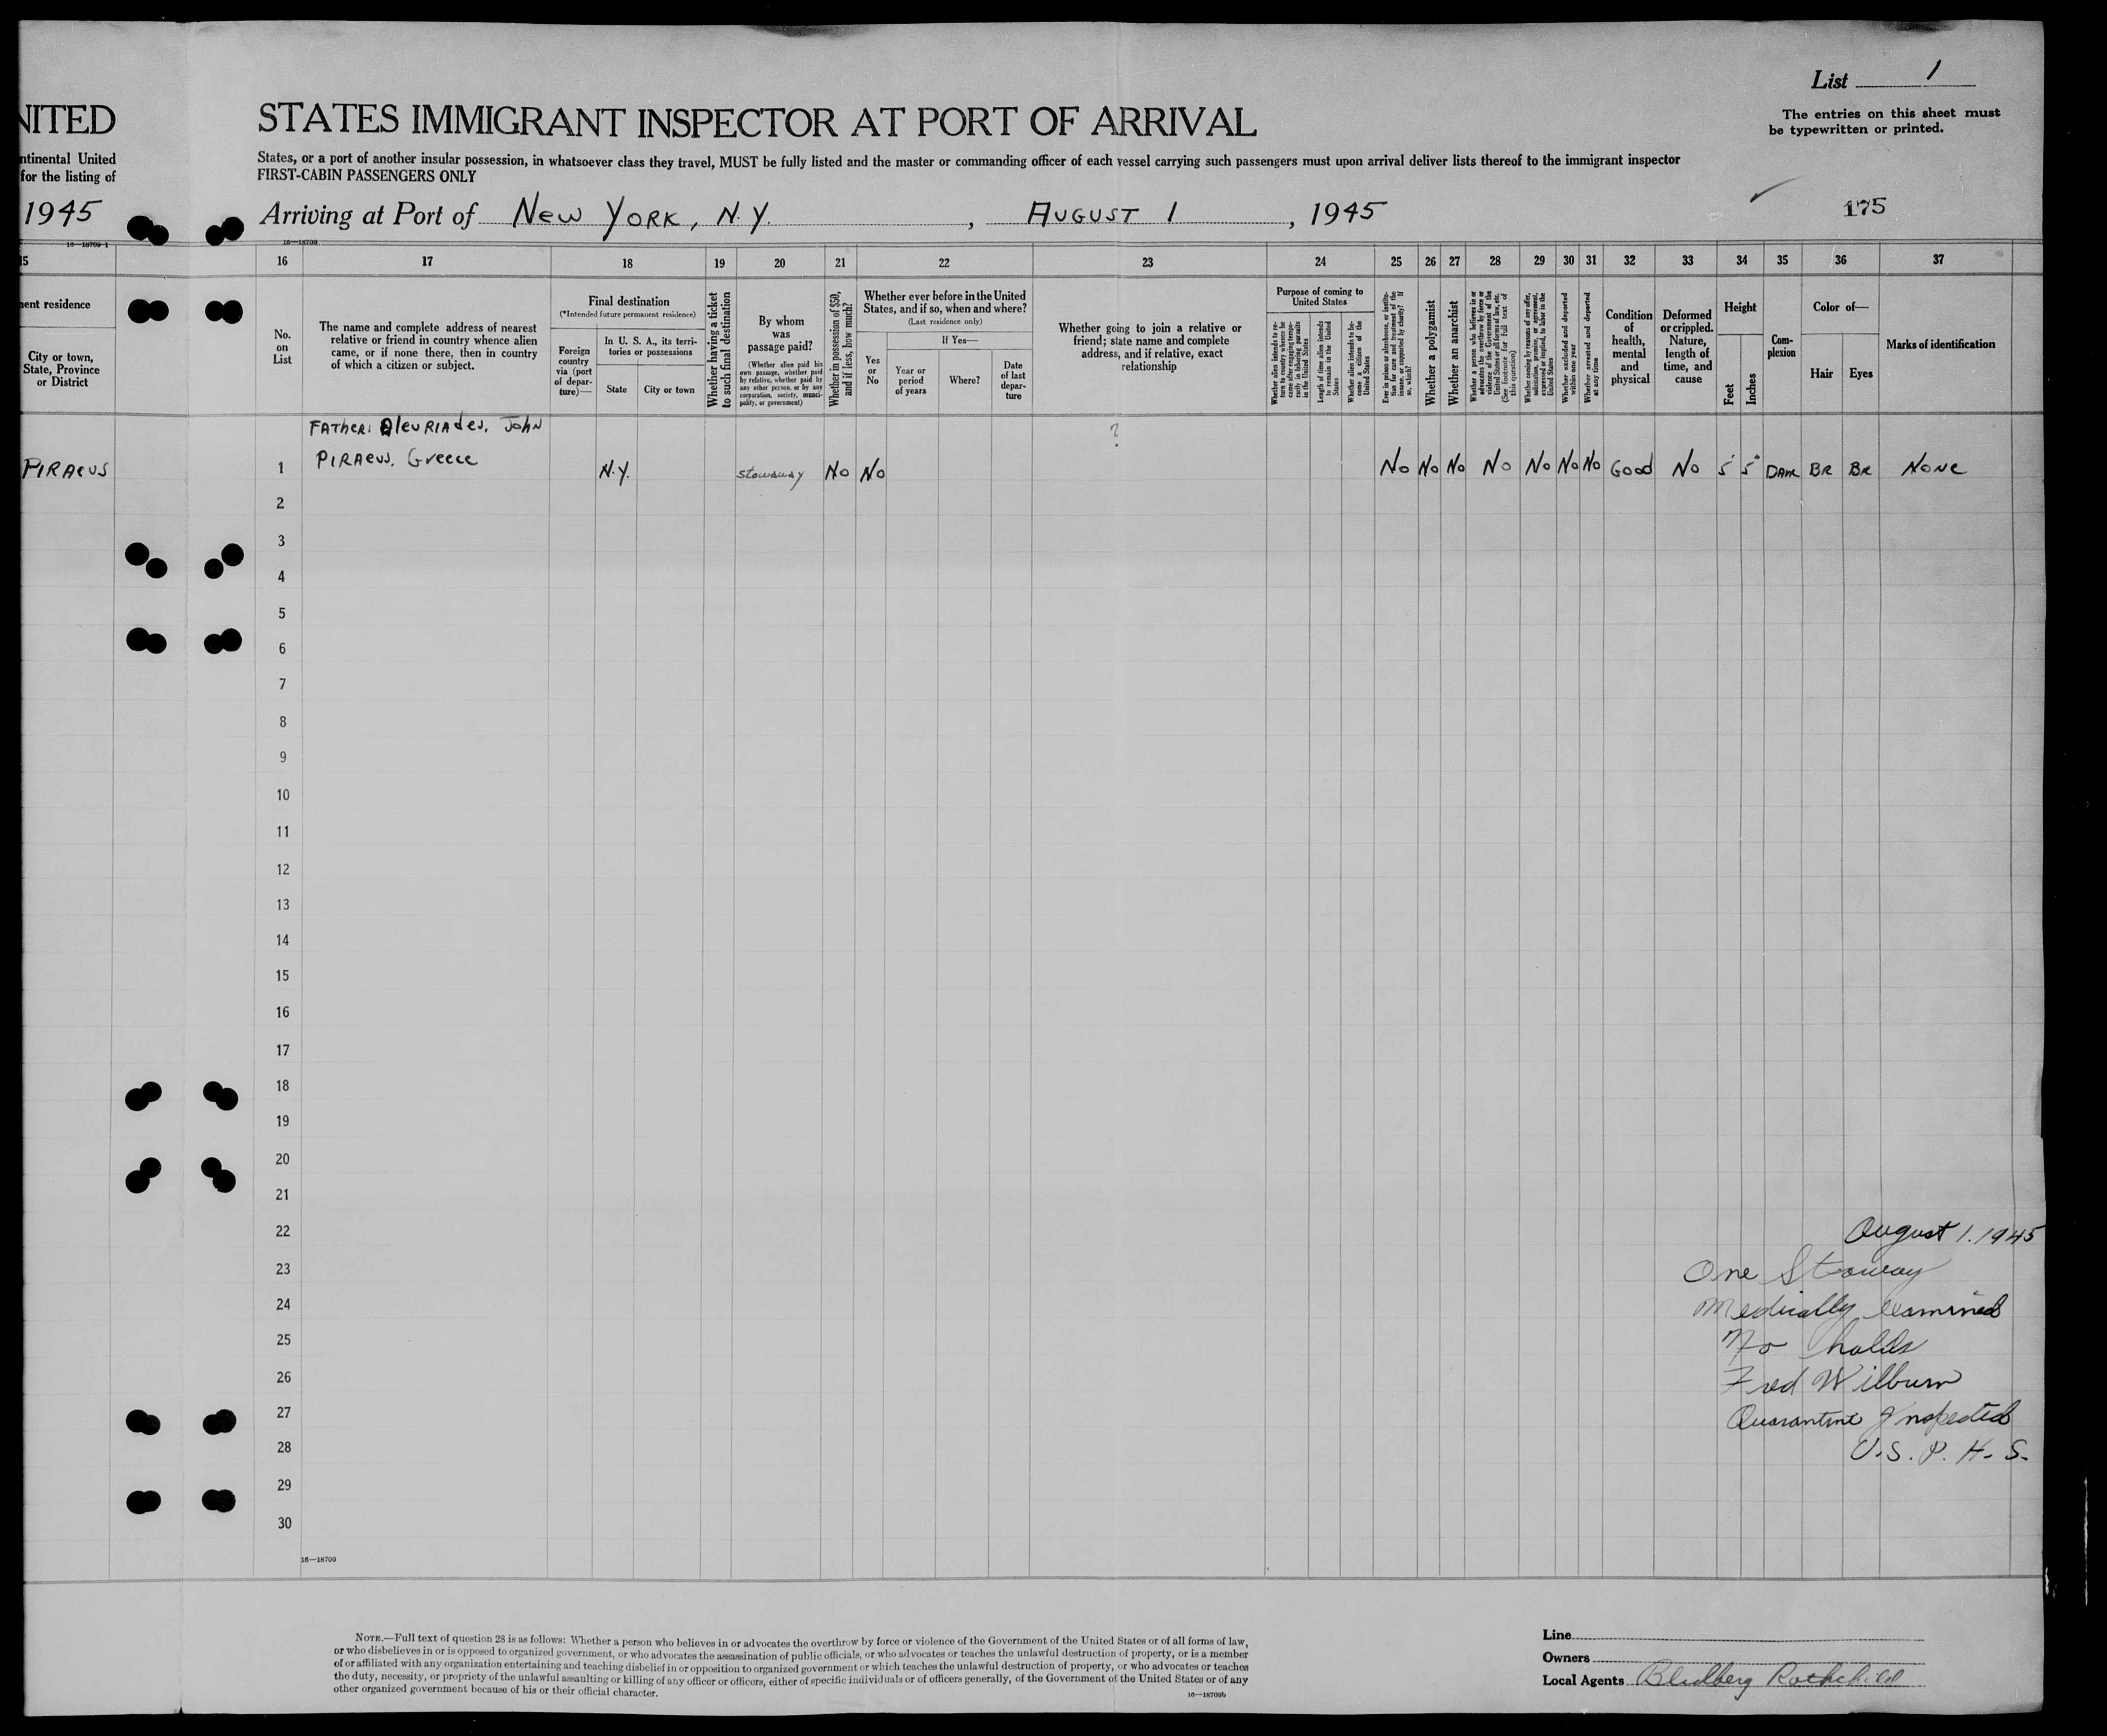 List 1
The entries on this sheet must
be typewritten or printed.
NITED
STATES IMMIGRANT INSPECTOR AT PORT OF ARRIVAL
ntinental United
for the listing of
States, or a port of another insular possession, in whatsoever class they travel, MUST be fully listed and the master or commanding officer of each vessel carrying such passengers must upon arrival deliver lists thereof to the immigrant inspector
FIRST-CABIN PASSENGERS ONLY
1945
Arriving at Port of New York, N.Y. , August 1 , 1945
175
16—18709-1
16—18709
15 16 17 18 19 20 21 22 23 24 25 26 27 28 29 30 31 32 33 34 35 36 37
ent residence
City or town,
State, Province
or District
No.
on
List
The name and complete address of nearest
relative or friend in country whence alien
came, or if none there, then in country
of which a citizen or subject.
Final destination
(*Intended future permanent residence)
Foreign
country
via (port
of depar-
ture)—
In U. S. A., its terri-
tories or possessions
State
City or town
Whether having a ticket
to such final destination
By whom
was
passage paid?
(Whether alien paid his
own passage, whether paid
by relative, whether paid by
any other person, or by any
corporation, society, munici-
pality, or government)
Whether in possession of $50,
and if less, how much?
Whether ever before in the United
States, and if so, when and where?
(Last residence only)
Yes
or
No
If Yes—
Year or
period
of years
Where?
Date
of last
depar-
ture
Whether going to join a relative or
friend; state name and complete
address, and if relative, exact
relationship
Purpose of coming to
United States
Whether alien intends to re-
turn to country whence he
came after engaging tempo-
rarily in laboring pursuits
in the United States
Length of time alien intends
to remain in the United
States
Whether alien intends to be-
come a citizen of the
United States
Ever in prison or almshouse, or institu-
tion for care and treatment of the
insane, or supported by charity? If
so, which?
Whether a polygamist
Whether an anarchist
Whether a person who believes in or
advocates the overthrow by force or
violence of the Government of the
United States or all forms of law, etc.
(See footnote for full text of
this question)
Whether coming by reason of any offer,
solicitation, promise, or agreement,
expressed or implied, to labor in the
United States
Whether excluded and deported
within one year
Whether arrested and deported
at any time
Condition
of
health,
mental
and
physical
Deformed
or crippled.
Nature,
length of
time, and
cause
Height
Feet
Inches
Com-
plexion
Color of—
Hair
Eyes
Marks of identification
Father: Aleuriades, John ?
Piraeus 1 Piraeus, Greece N.Y. stowaway No No No No No No No No No Good No 5' 5" Dark Br Br None
2
3
4
5
6
7
8
9
10
11
12
13
14
15
16
17
18
19
20
21
22 August 1. 1945
23 One Stoway
24 Medically examined
25 No holds
26 Fred Wilburn
27 Quarantine Inspected
28 U.S.P.H.S.
29
30
16—18709
NOTE.—Full text of question 28 is as follows: Whether a person who believes in or advocates the overthrow by force or violence of the Government of the United States or of all forms of law,
or who disbelieves in or is opposed to organized government, or who advocates the assassination of public officials, or who advocates or teaches the unlawful destruction of property, or is a member
of or affiliated with any organization entertaining and teaching disbelief in or opposition to organized government or which teaches the unlawful destruction of property, or who advocates or teaches
the duty, necessity, or propriety of the unlawful assaulting or killing of any officer or officers, either of specific individuals or of officers generally, of the Government of the United States or of any
other organized government because of his or their official character.
16—18709b
Line
Owners
Local Agents Blidberg Rothchild